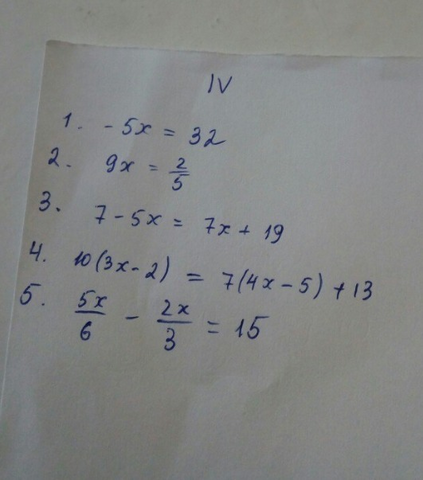 IV
1. -5x = 32
2. 9x = 2/5
3. 7 - 5x = 7x + 19
4. 10(3x - 2) = 7(4x - 5) + 13
5. 5x/6 - 2x/3 = 15